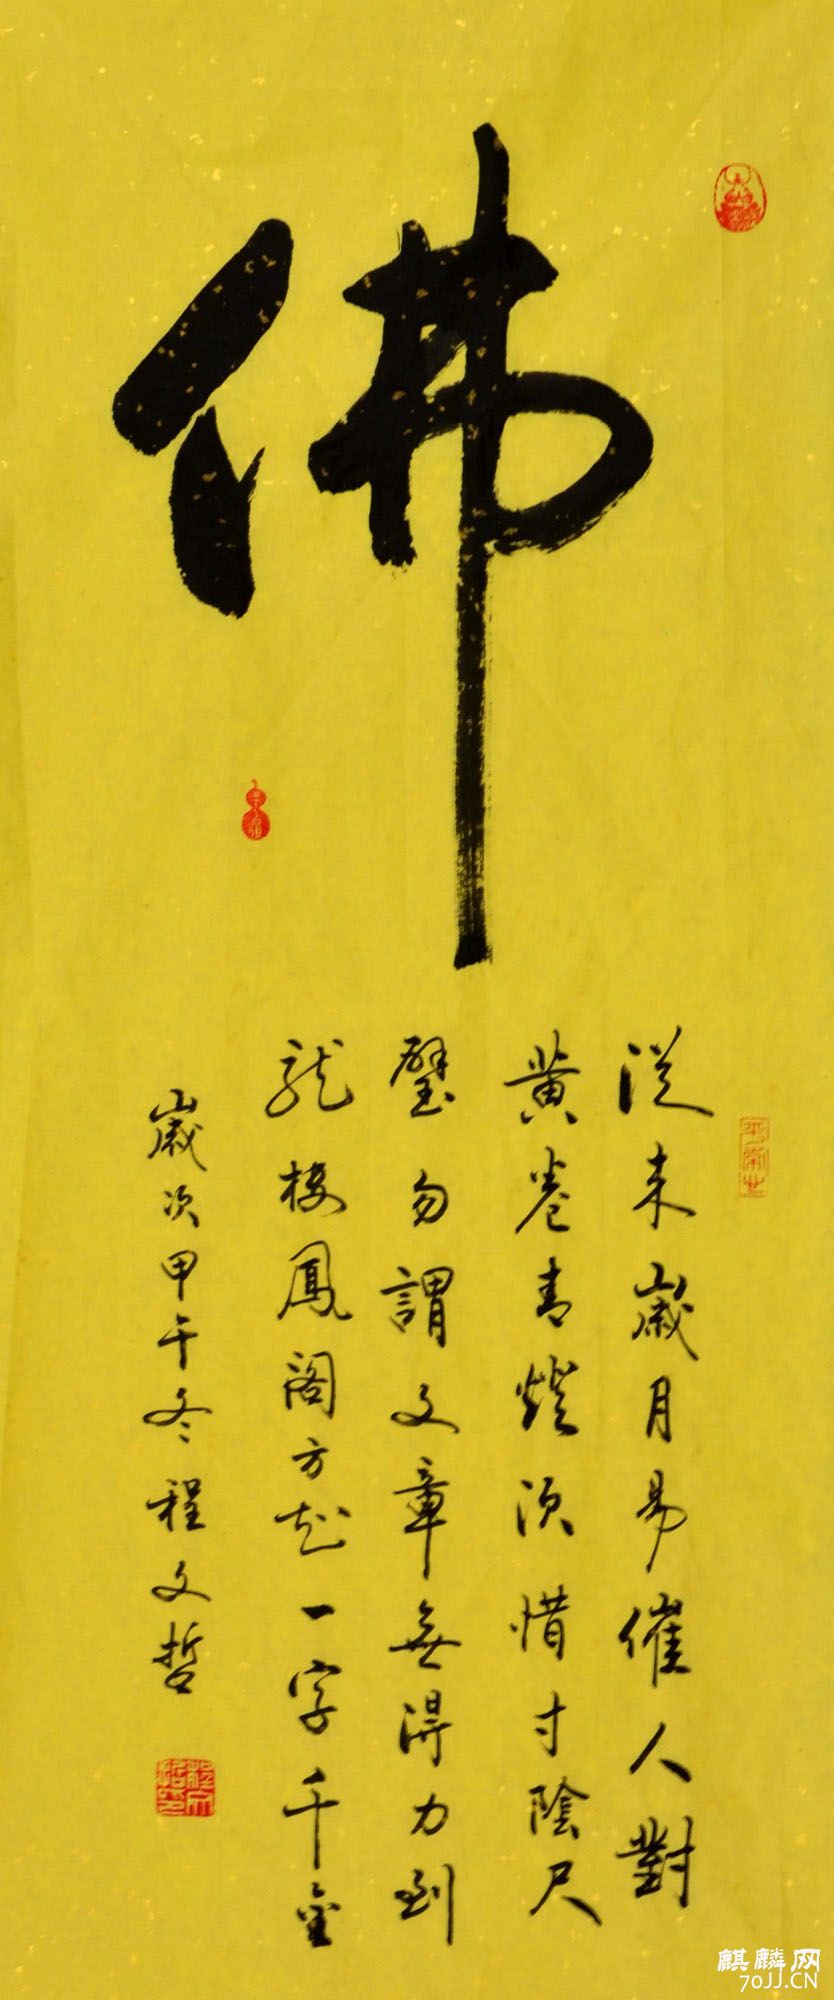 佛
從来歲月易催人對
黄卷青燈須惜寸陰尺
璧勿謂文章無得力到
龍楼鳳閣方知一字千金
歲次甲午冬程文哲
麒麟网
70JJ.CN